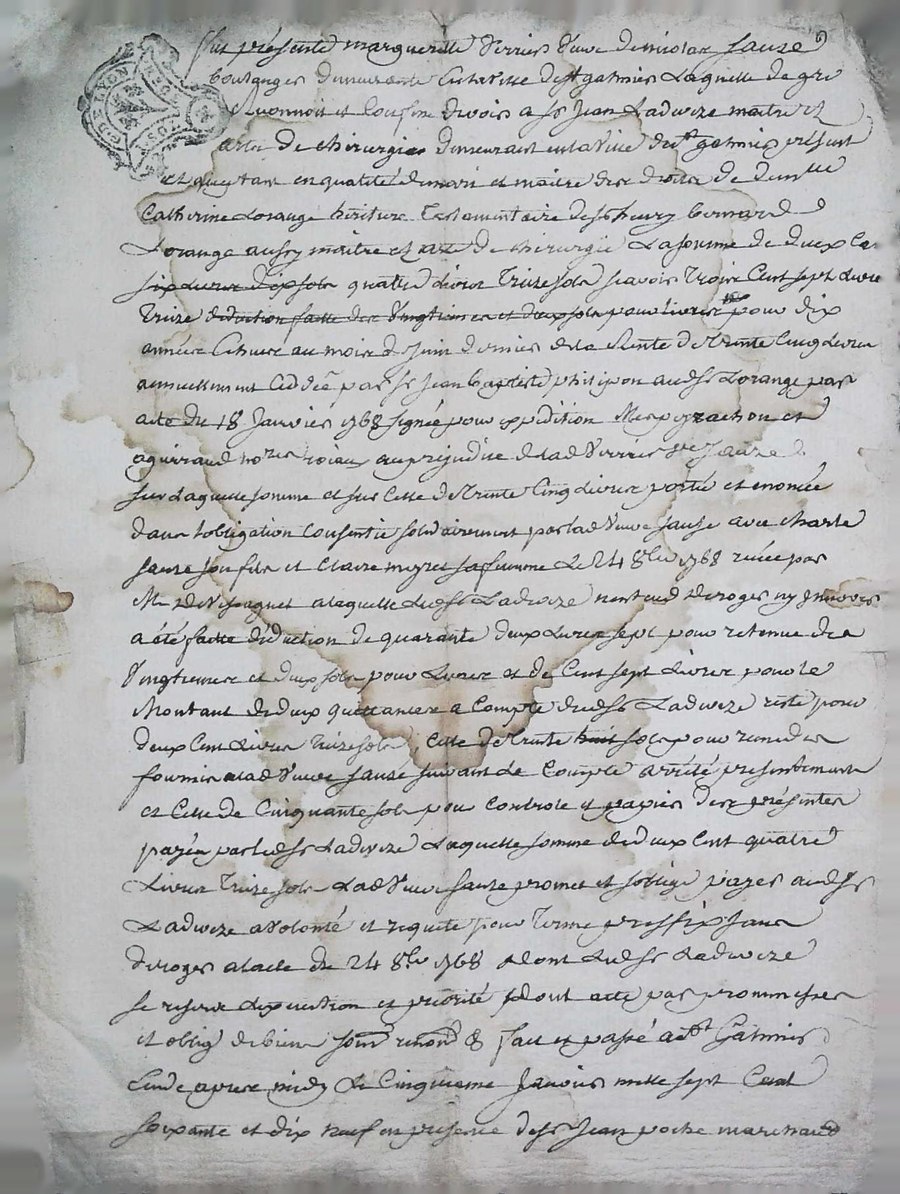 fut présente marguerite Verrier veuve de nicolas sauze
boulanger demeurante en la ville de st galmier laquelle de gré
reconnoit et confesse devoir a sr Jean Ladveze maitre et
de chirurgie demeurant en la ville de st galmier présent
et acceptant en qualité de mari et maitre des droits de demlle
Catherine Lorange héritiere testamentaire de sr henry bernard
Lorange aussy maitre et de chirurgie La somme de deux Cent
six livres dix sols quatre livres treize sols scavoir trois Cent sept livres
treize déduction faitte des vingtiemes et deux sols pour livres pour dix
années échues au mois de Juin dernier de la Rente de trente Cinq livres
annuellement Cédée par sr Jean baptiste phitipon audsr Lorange par
acte du 18 Janvier 1768 signée pour expédition et
nores roiaux au préjudice de lad Verrier ve Sauze
sur laquelle somme et sur Celle de trente Cinq livres portée et enoncée
dans lobligation Consentie solidairement par lad veuve sauze avec charle
sauze son fils et Claire meyret sa femme Le 24 8bre 1768 recue par
Me a laquelle ledsr Ladveze nentend deroger ny innover
a été faitte déduction de quarante deux livres sept pour retenue des
vingtiemes et deux sols pour Livres et de Cent sept Livres pour le
Montant de deux quittances a Compte dudsr Ladveze reste pour
deux Cent livres treize sols, celle de trente huit sols pour remedes
fournis a lad veuve sauze suivant le Compte arrété présentement
et Celle de Cinquante sols pour Controle et papier des présentes
payée par ledsr Ladveze Laquelle somme de deux Cent quatre
Livres treize sols Lad veuve sauze promet et soblige payer audsr
Ladveze a volonté et requete pour terme preffix sans
deroger a lacte du 24 8bre 1768 dont ledsr Ladveze
se reserve lexecution et priorité dont acte par promesses
et oblig de biens soum renonc & fait et passé a st Galmier
Etude apres midy Le Cinquieme Janvier mille sept Cent
soixante et dix neuf en presence de sr Jean poche marchand